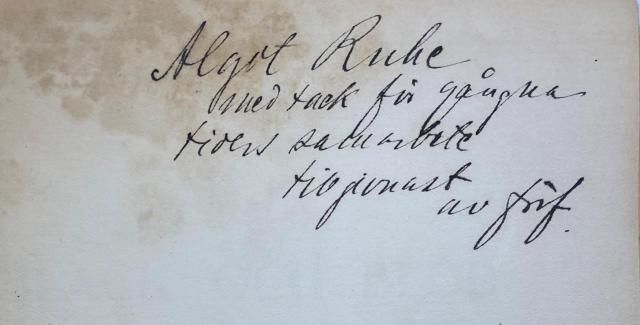 Algot Ruhe
med tack för gångna
tiders samarbete
tillegnast
av förf.